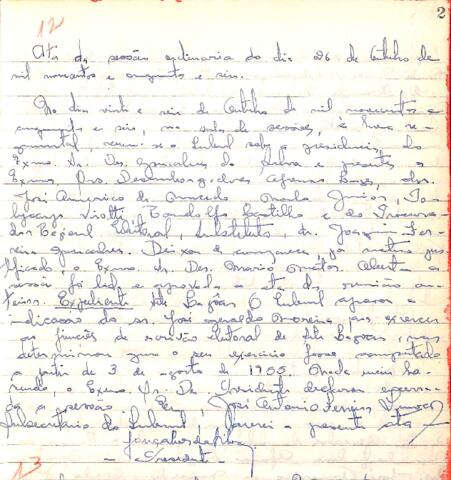 2
12
Ata da sessão ordinaria do dia 26 de Outubro de
mil novecentos e cincoenta e seis.
No dia vinte e seis de Outubro de mil novecentos e
cincoenta e seis, na sala de sessões, à hora re-
gimental, reuniu-se o Tribunal sob a presidencia do
Exmo. Sr. Des. Gonçalves da Silva e presentes os
Exmos. Srs. Desembargadores Afonso drs.
José Americo de Macedo, Prado Junior,
Viotti, Castillo e o do Procura-
dor Regional Eleitoral, Substituto, dr. Joaquim Fer-
reira Gonçalves. Deixou de comparecer, por motivo jus-
tificado, o Exmo. Sr. Des. Mario Matos. Aberta a
sessão foi lida e aprovada a ata da reunião an-
terior. Expediente: Sete Lagôas O Tribunal aprovou a
indicação do sr. José Geraldo Moreira para exercer
as funções de escrivão eleitoral de Sete Lagôas, mas
determinou que o seu exercicio fosse computado
a partir de 3 de agosto de 1955. Nada mais ha-
vendo, o Exmo. Sr. Des. Presidente declarou encerra-
da a sessão. Eu, José Antonio Ferreira
Subsecretário do Tribunal, lavrei a presente ata
Gonçalves da Silva
- Presidente -
13